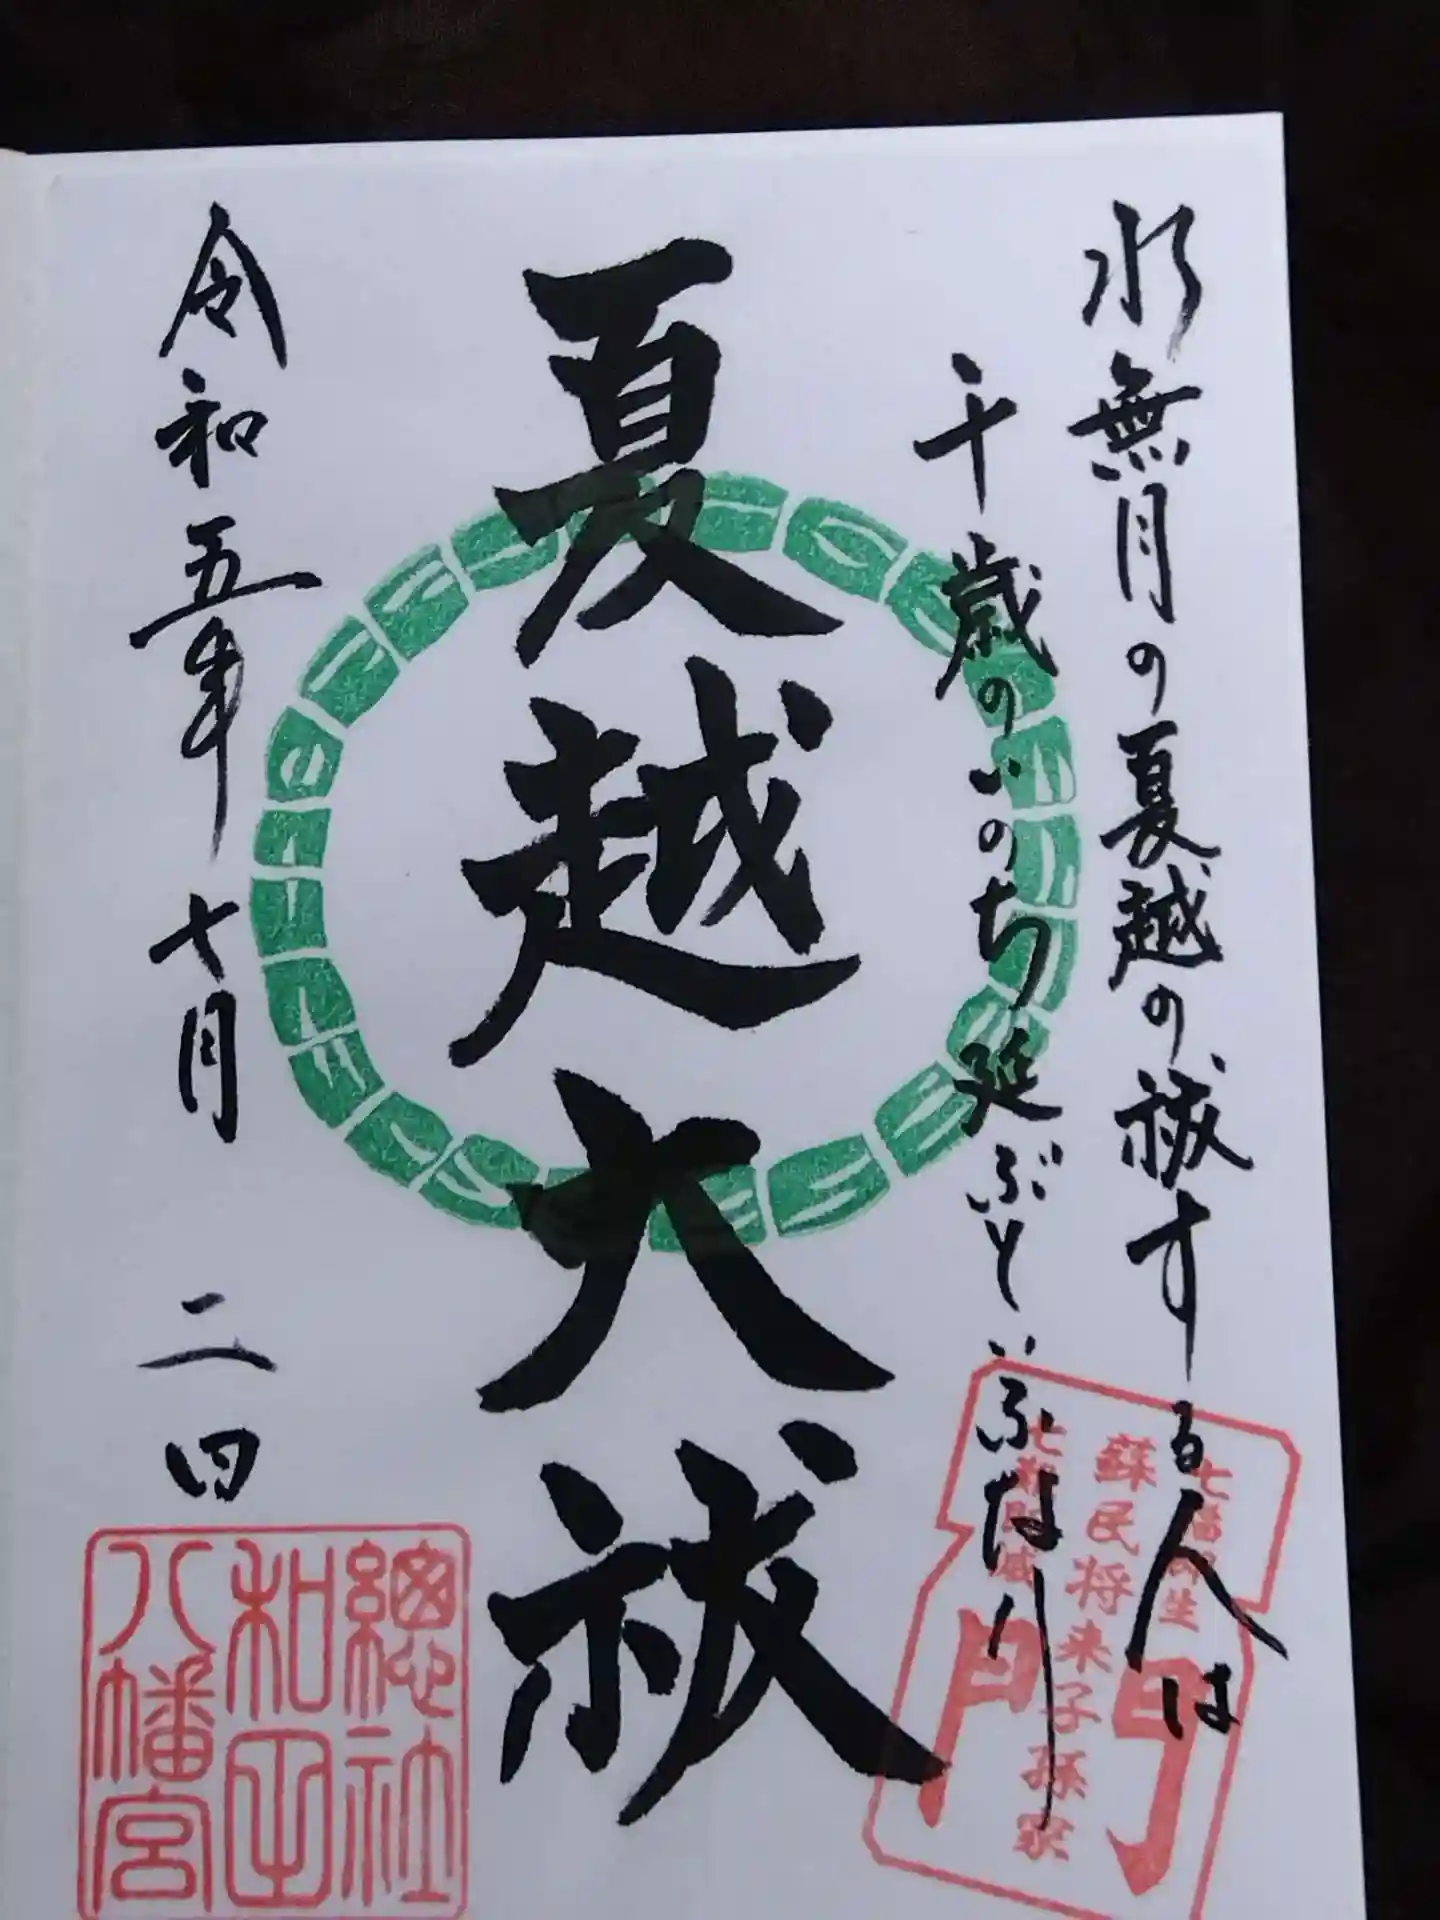 水無月の夏越の祓する人は
千歳のいのち延ぶといふなり
夏越大祓
令和五年七月二四
總社
和田
八幡宮
蘇民将来子孫家
門